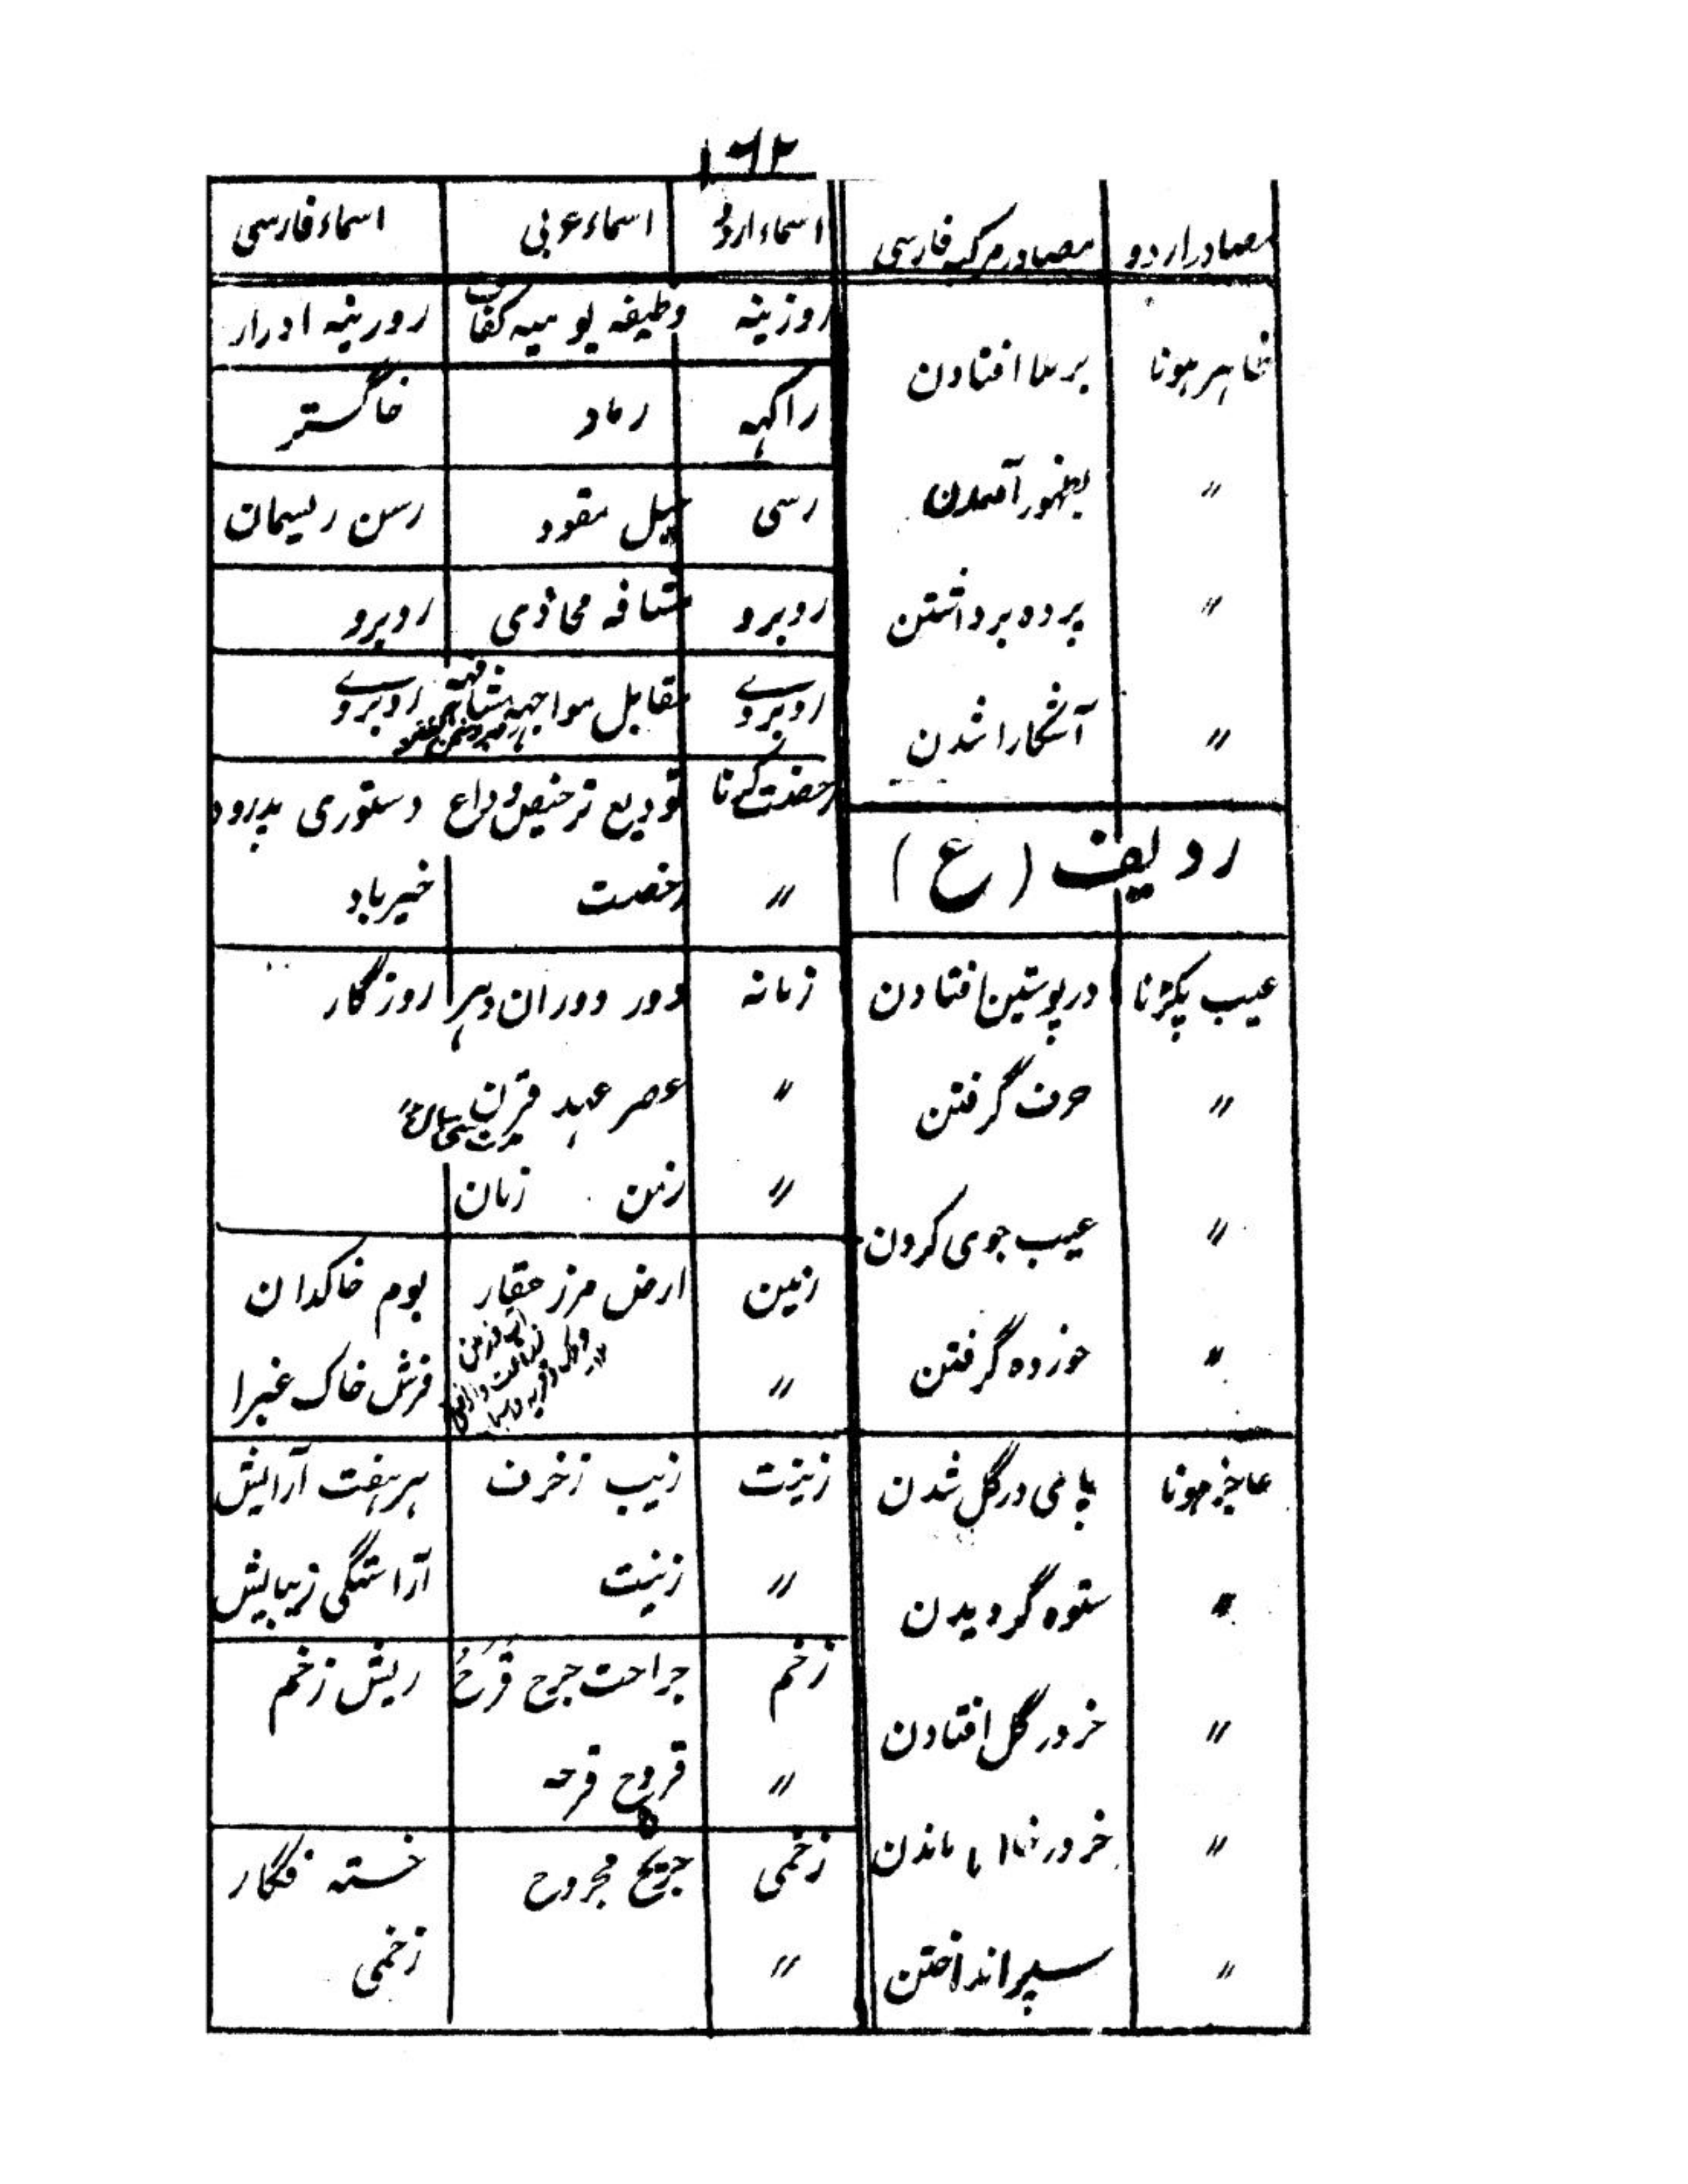 ۱۶۲
مصادر اردو	مصادر مرکبہ فارسی	اسماء اردو	اسماء عربی	اسماء فارسی
ظاہر ہونا	برملا افتادن
〃	بظہور آمدن
〃	پردہ برداشتن
〃	آشکارا شدن
ردیف (ع)
عیب پکڑنا	در پوستین افتادن
〃	حرف گرفتن
〃	عیب جوی کردن
〃	خوردہ گرفتن
عاجز ہونا	پای در گل شدن
〃	ستوہ گردیدن
〃	خر در گل افتادن
〃	خر در ماندن
〃	سپر انداختن
روزینہ	وظیفہ یومیہ کفاف	روزینہ ادرار
راکہہ	رماد	خاکستر
رسی	حبل مقود	رسن ریسمان
روبرو	مشافہ محاذی	روبرو
روبروے	مقابل مواجہہ	روبروے
رخصت کرنا	تودیع ترخیص وداع	دستوری پدرود
〃	رخصت	خیرباد
زمانہ	دور دوران دہر	روزگار
〃	عصر عہد قرن
〃	زمن زمان
زمین	ارض مرز عقار	بوم خاکدان
〃	فرش خاک غبرا
زینت	زیب زخرف	ہرہفت آرایش
〃	زینت	آراستگی زیبایش
زخم	جراحت جرح قرح	ریش زخم
〃	قروح قرحہ
زخمی	جریح مجروح	خستہ فگار
〃	زخمی